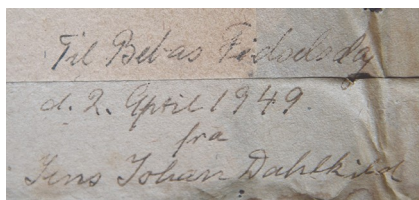 Til Bebas Fødselsdag
d. 2. April 1949.
fra
Jens Johan Dahlkild